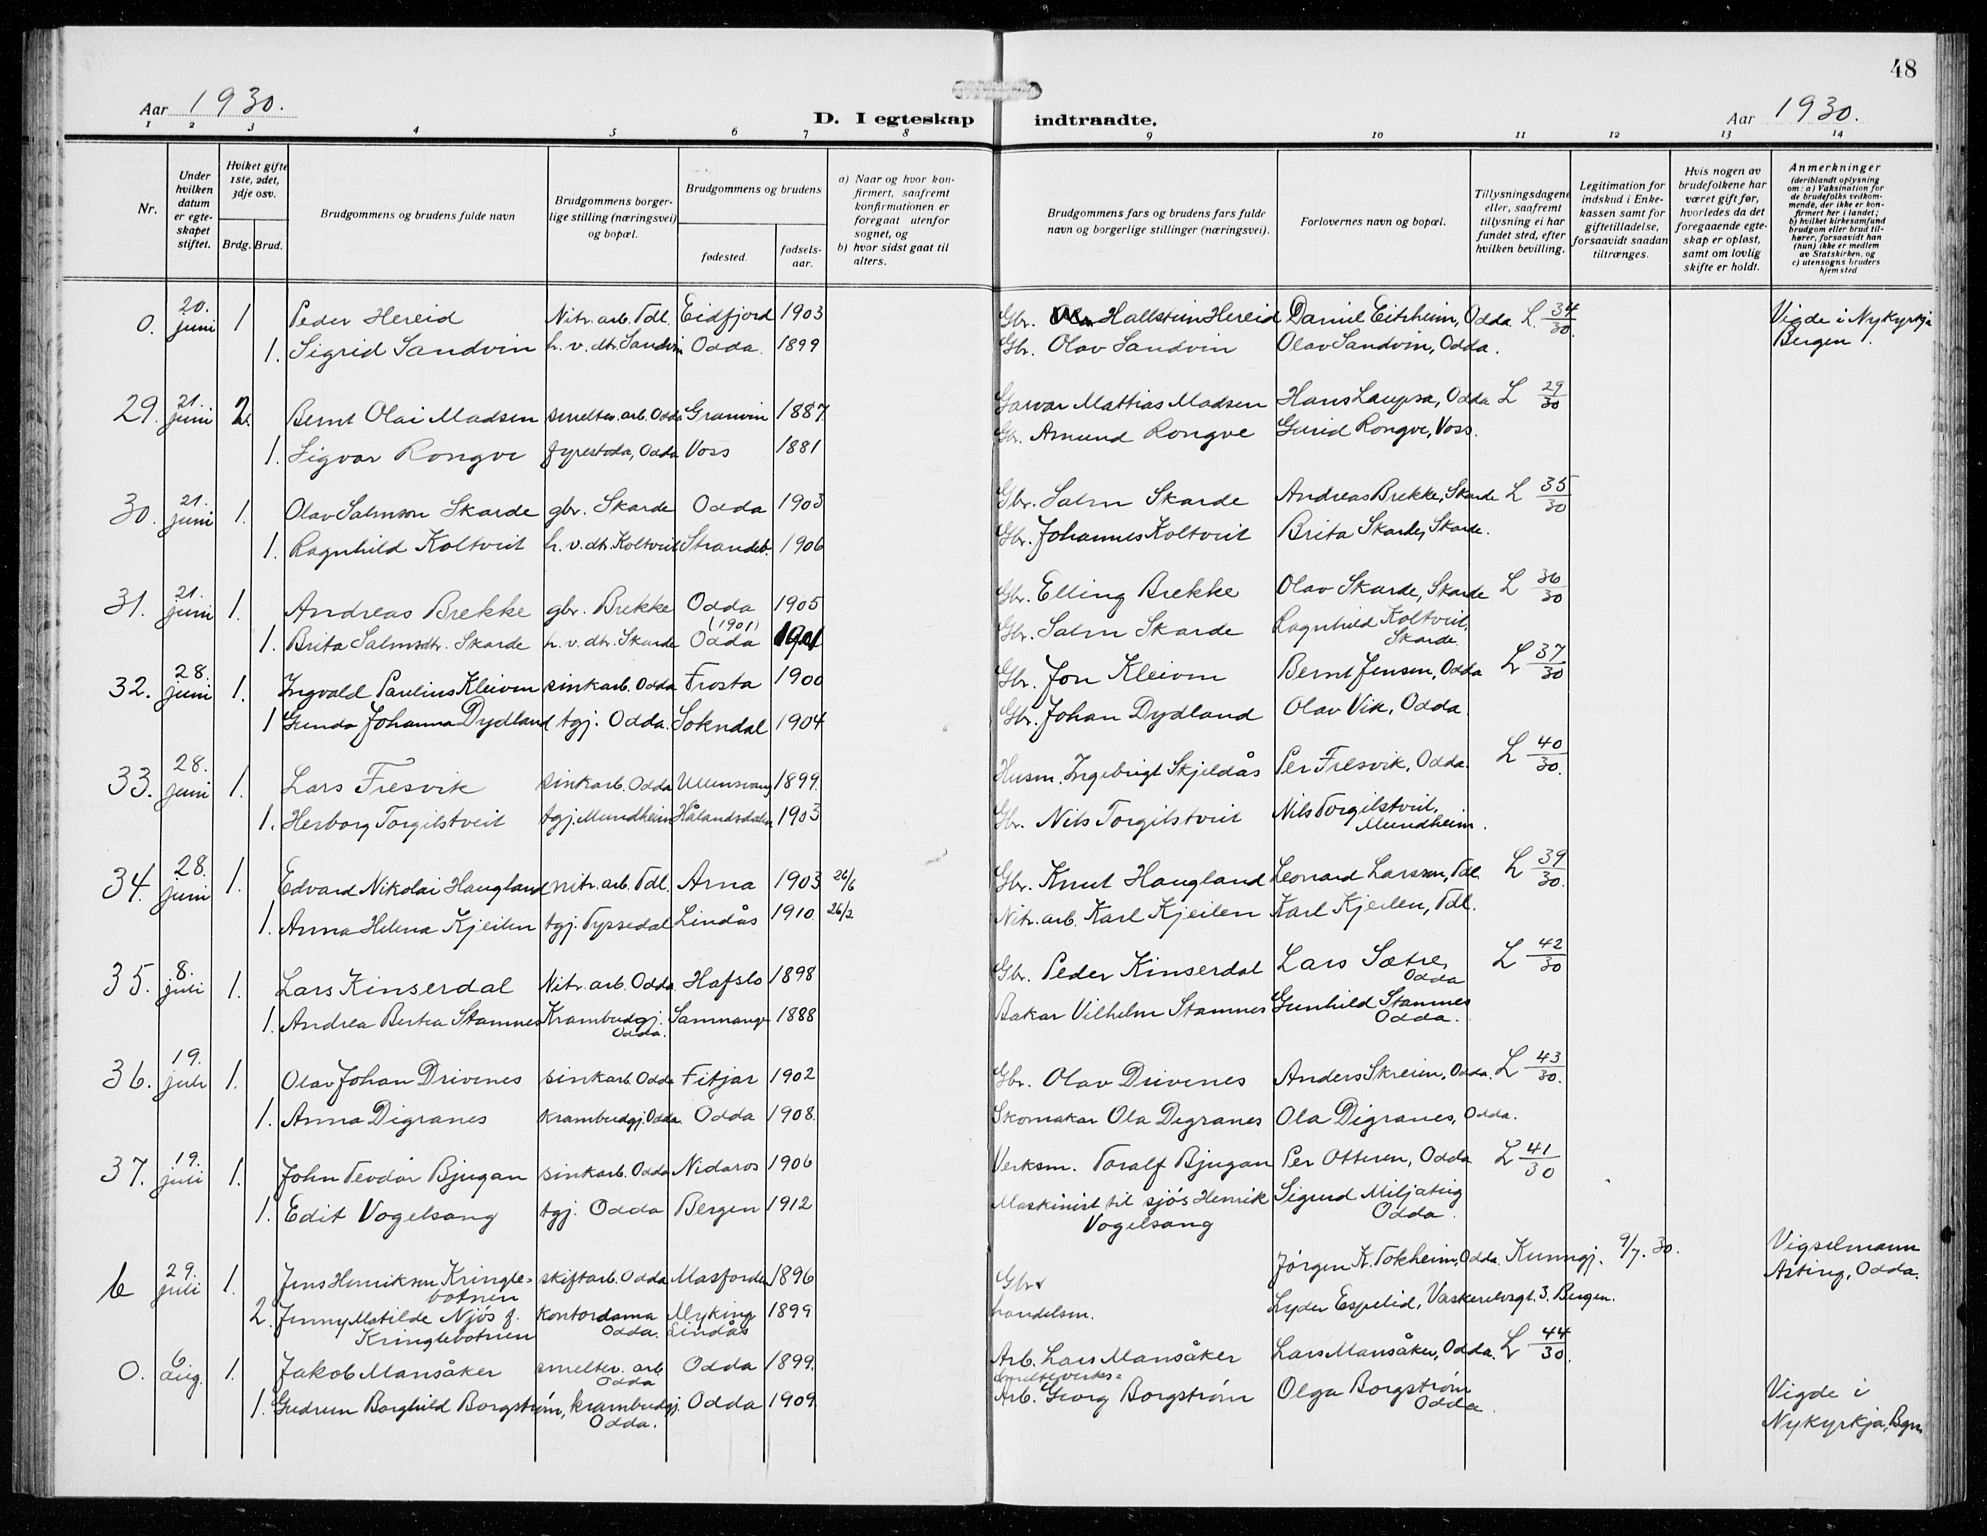 48
Aar 1930.
D. I egteskap indtraadte.
Aar 1930.
1 2 3 4 5 6 7 8 9 10 11 12 13 14
Nr.
Under hvilken datum er egteskapet stiftet.
Hviket gifte 1ste, 2det, 3dje osv.
Brdg. Brud.
Brudgommens og brudens fulde navn
Brudgommens borgerlige stilling (næringsvei) og bopæl.
Brudgommens og brudens
fødested.
fødselsaar.
a) Naar og hvor konfirmert, saafremt konfirmationen er foregaat utenfor sognet, og
b) hvor sidst gaat til alters.
Brudgommens fars og brudens fars fulde navn og borgerlige stillinger (næringsvei).
Forlovernes navn og bopæl.
Tillysningsdagene eller, saafremt tillysning ei har fundet sted, efter hvilken bevilling.
Legitimation for indskud i Enkekassen samt for giftetilladelse, forsaavidt saadan tiltrænges.
Hvis nogen av brudefolkene har været gift før, hvorledes da det foregaaende egteskap er opløst, samt om lovlig skifte er holdt.
Anmerkninger (deriblandt oplysning om: a) Vaksination for de brudefolks vedkommende, der ikke er konfirmert her i landet; b) hvilket kirkesamfund brudgom eller brud tilhører, forsaavidt han (hun) ikke er medlem av Statskirken, og c) utensogns bruders hjemsted
0. 20. juni 1 Peder Hereid Nitr. arb. Tdl. Eidfjord 1903 Gbr. Hallstein Hereid Daniel Eitrheim, Odda L. 34/30 Vigde i Nykyrkja
1. Sigrid Sandvin h. v. dtr. Sandvin Odda. 1899 Gbr. Olav Sandvin Olav Sandvin, Odda. Bergen.
29. 21. juni 2. Bernt Olai Madsen smeltev. arb. Odda Granvin 1887 Garvar Mattias Madsen Hans Laupsa, Odda L 29/30
1. Sigvor Rongve fyrestoda, Odda Voss 1881 Gbr. Amund Rongve Gurid Rongve, Voss.
30. 21. juni 1. Olav Salmson Skarde gbr. Skarde Odda 1903 Gbr. Salm Skarde Andreas Brekke, Skarde L 35/30
1. Ragnhild Koltveit h. v. dtr. Koltveit Strandeb. 1906 Gbr. Johannes Koltveit Brita Skarde, Skarde.
31. 21. juni 1. Andreas Brekke gbr. Brekke Odda 1905 Gbr. Elling Brekke Olav Skarde, Skarde L 36/30
1. Brita Salmsdtr. Skarde h. v. dtr. Skarde Odda (1901) 1901 Gbr. Salm Skarde Ragnhild Koltveit, Skarde
32. 28. juni 1. Ingvald Paulius Kleiven sinkarb. Odda Frosta 1900 Gbr. Jon Kleiven Bernt Jensen, Odda L 37/30
1 Gunda Johanna Dydland tgj. Odda. Sokndal 1904 Gbr. Johan Dydland Olav Vik, Odda
33. 28. juni 1. Lars Fresvik sinkarb. Odda Ullensvang 1899. Husm. Ingebrigt Skjeldås Per Fresvik, Odda. L 40/30.
1. Herborg Torgilstveit tgj. Mundheim Hålandsdalen 1903 Gbr. Nils Torgilstveit Nils Torgilstveit, Mundheim.
34. 28. juni 1. Edvard Nikolai Haugland nitr. arb. Tdl. Arna 1903 26/6 Gbr. Knut Haugland Leonard Larsson, Tdl. L 39/30.
1. Anna Helena Kjeilen tgj. Tyssedal Lindås 1910. 26/2 Nitr. arb. Karl Kjeilen Karl Kjeilen, Tdl.
35. 8. juli 1. Lars Kinserdal Nitr. arb. Odda Hafslo 1898 Gbr. Peder Kinserdal Lars Sætre, Odda L 42/30
1. Andrea Bertea Stamnes Krambudgj. Odda. Samnanger 1888 Bakar Vilhelm Stamnes Gunhild Stamnes Odda.
36. 19. juli 1. Olav Johan Drivenes sinkarb. Odda Fitjar 1902 Gbr. Olav Drivenes Anders Skreien, Odda. L 43/30.
1. Anna Digranes krambudgj. Odda. Odda 1908. Skomakar Ola Digranes Ola Digranes, Odda.
37. 19. juli 1. John Teodor Bjugan sinkarb. Odda Nidaros 1906 Verksm. Toralf Bjugan Per Otteren, Odda L 41/30
1. Edit Vogelsang tgj. Odda Bergen 1912 Maskinist til sjös Henrik Vogelsang Sigurd Miljeteig Odda.
b 29. juli 1. Jens Henriksen Kringlebotnen skiftarb. Odda Masfjorden 1896 Gbr. Jørgen K. Tokheim, Odda. Kunngj. 9/7. 30. Vigselmann Asting, Odda.
2. Jenny Matilde Njøs f. Kringlebotnen kontordama Odda. Myking Lindås 1899 handelsm. Lyder Espelid, Vaskerelvsgt. 3. Bergen.
0. 6 aug. 1. Jakob Mansåker smeltev. arb. Odda Odda 1899. Arb. Lars Mansåker Lars Mansåker, Odda. L 44/30.
1. Gudrun Borghild Borgstrøm, krambudgj. Odda. Odda 1909. Smelteverks= Arb. Georg Borgstrøm Olga Borgstrøm Odda. Vigde i Nykyrkja, Bgn